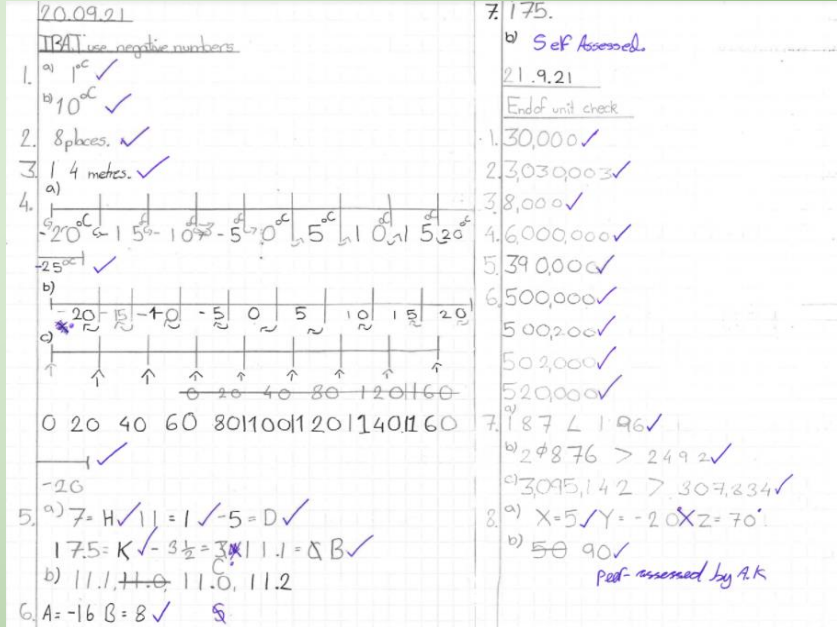 20.09.21
TBAT use negative numbers
1. a) 1°C ✓
b) 10°C ✓
2. 8 places. ✓
3. 14 metres. ✓
4. a)
-20°C -15 -10 -5 0 5 10 15 20°C
-25°C ✓
b)
-20 -15 -10 -5 0 5 10 15 20
c)
0 20 40 80 120 160
0 20 40 60 80 100 120 140 160
✓
-20
5. a) 7 = H ✓ 11 = I ✓ -5 = D ✓
17.5 = K ✓ -3½ = 11.1 = B ✓
b) 11.1, 11.0, 11.0, 11.2
6. A = -16 B = 8 ✓
7. 175.
b) Self Assessed.
21.9.21
End of unit check
1. 30,000 ✓
2. 3,030,003 ✓
3 8,000 ✓
4. 6,000,000 ✓
5. 390,000 ✓
6. 500,000 ✓
500,200 ✓
502,000 ✓
520,000 ✓
7. a) 187 < 196 ✓
b) 2876 > 2492 ✓
c) 3,095,142 > 307,834 ✓
8. a) X=5 ✓ Y=-20 X Z=70
b) 50 90 ✓
peer-assessed by A.K